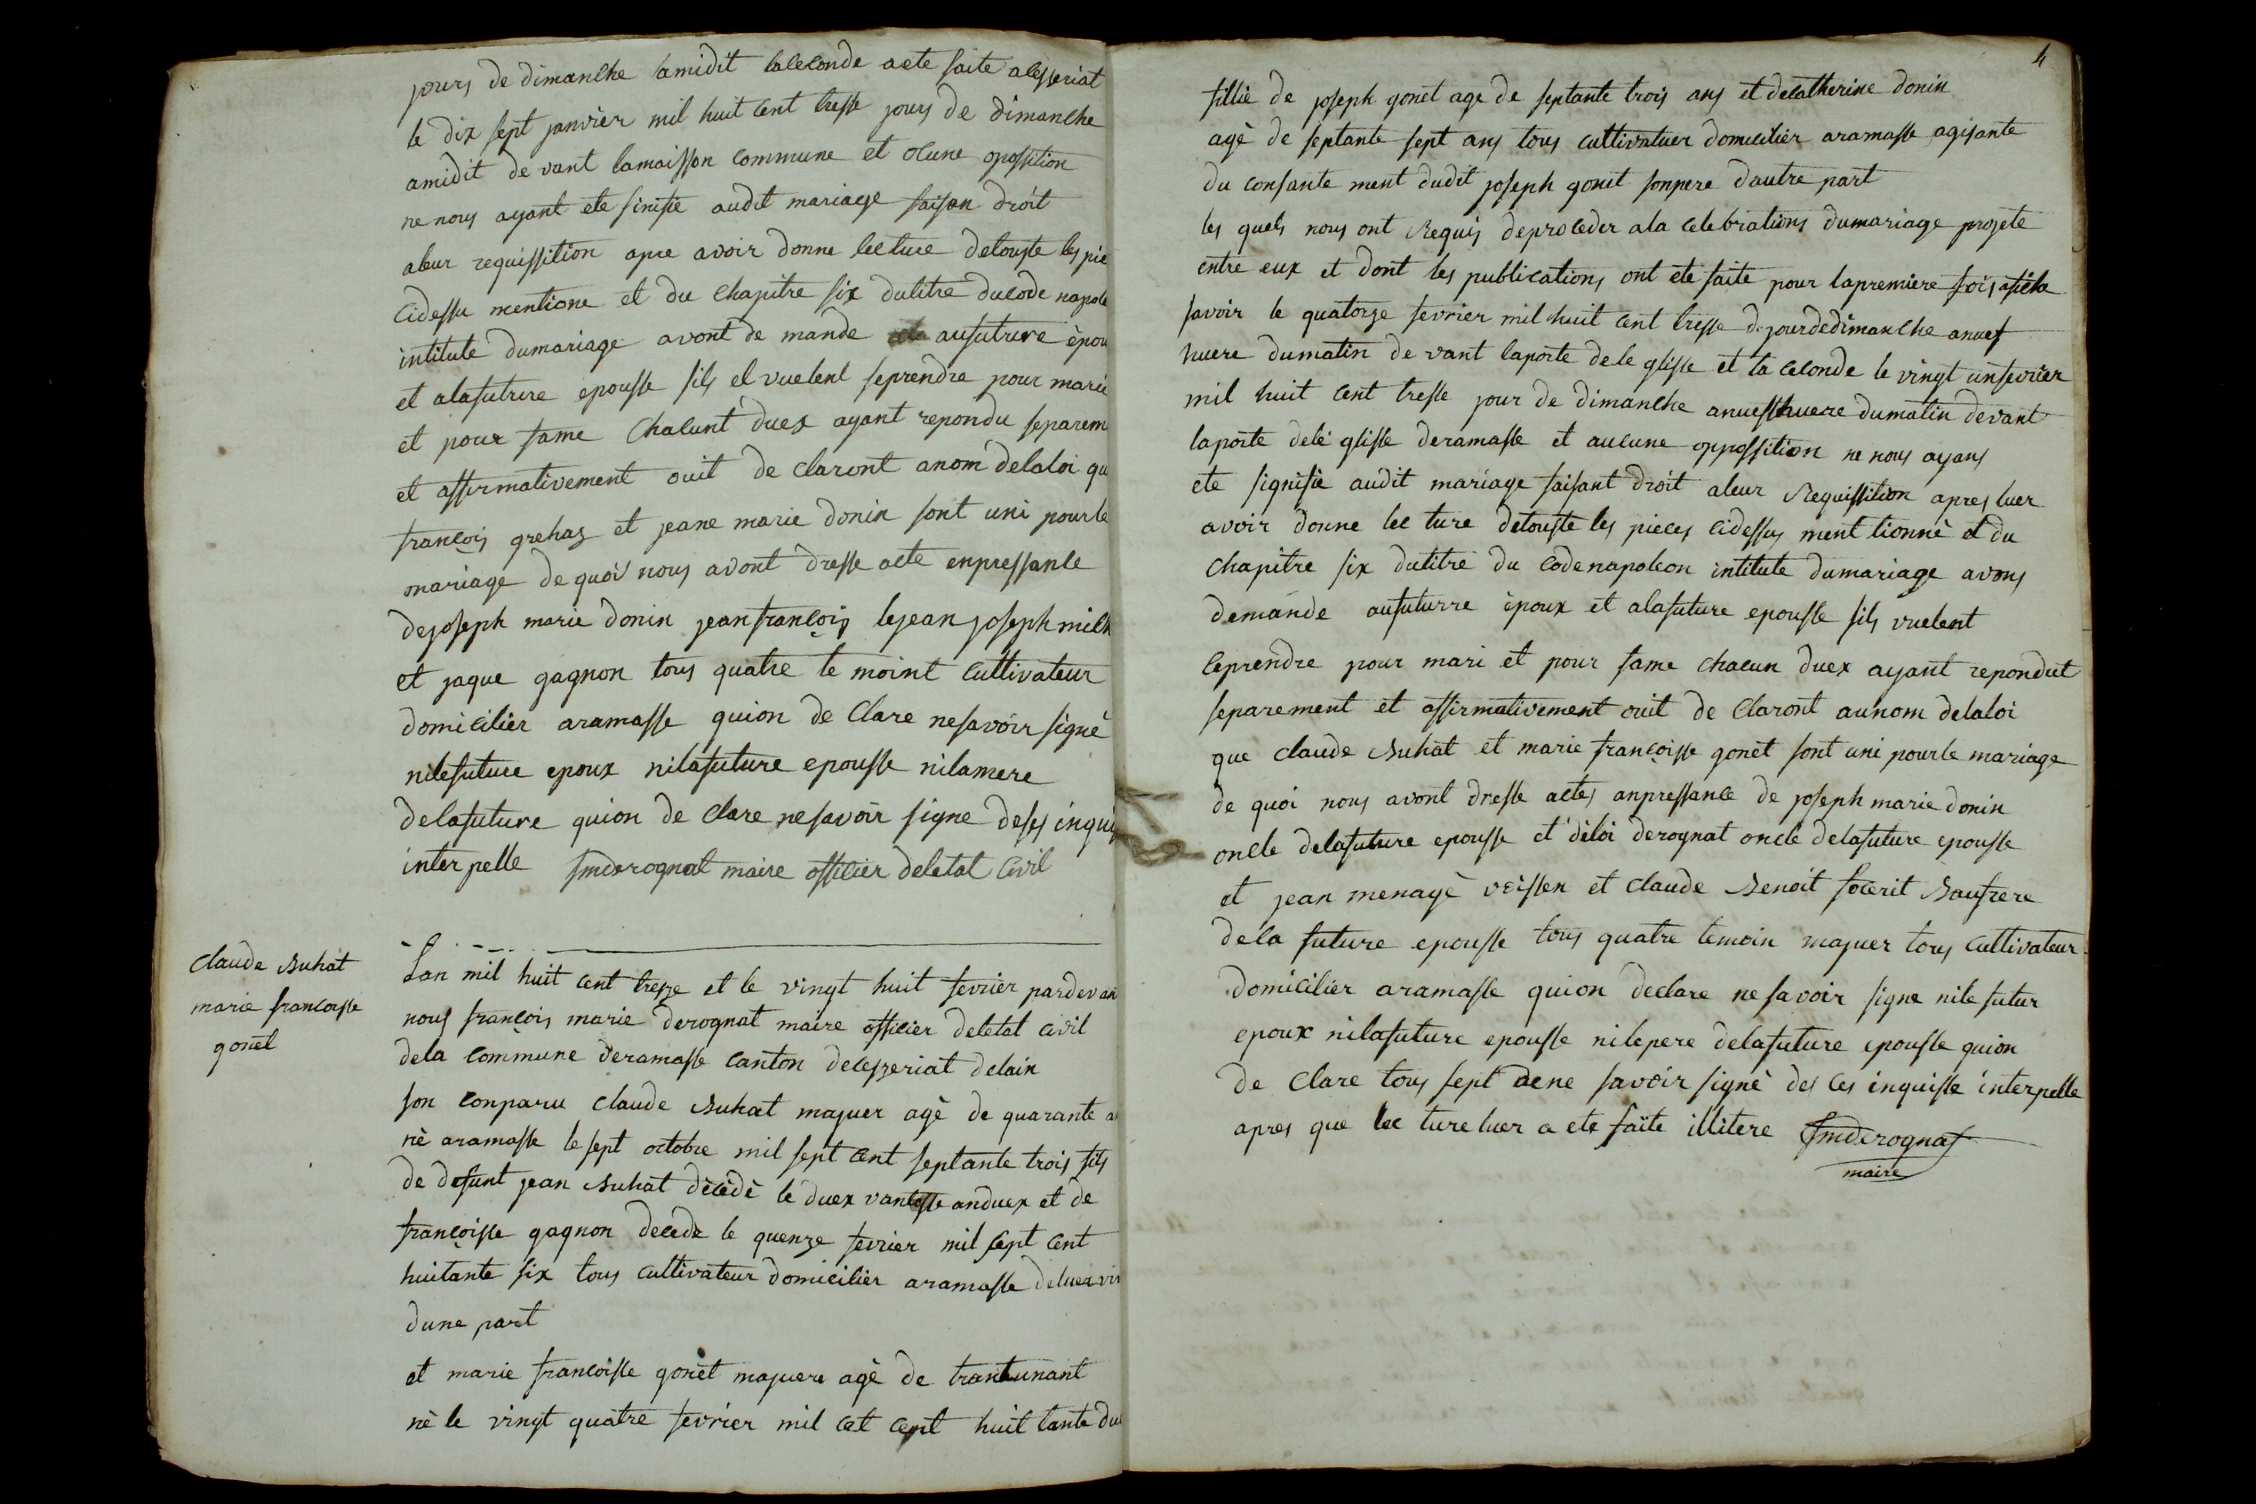 jours de dimanche lamidit laceconde acte faite acesseriat
le dix sept janvier mil huit cent tresse jours de dimanche
amidit de vant lamaisson commune et ocune opossition
ne nous ayant ete sinifie audit mariage faisan droit
aleur requissition apre avoir donne lecture detouste les pie
cidessu mentione et du chapitre six dulitre ducode napole
intitule dumariage avont de mande aufuture èpou
et alafuture epousse sils el vuelent seprendre pour marié
et pour fame chacunt duex ayant repondu separem
et affirmativement ouit de claront anom delaloi qu
françois grehaz et jeane marie donin sont uni pourle
mariage de quoi nous avont dresse acte enpressanle
dejoseph marie donin jeanfrançois lejean joseph mich
et jaque gagnon tous quatre te moint cultivateur
domicilier aramasse quion de clare nesavoir signè
nilefuture epoux nilafuture epousse nilamere
delafuture quion de clare nesavoir signe deses inqui
interpelle fmderognat maire officier deletat civil
claude buhat
marie francoisse
gonet
Lan mil huit cent tresze et le vingt huit fevrier pardevan
nous françois marie derognat maire officier deletat civil
dela commune deramasse canton deceszeriat delain
son conparu claude buhat majuer agè de quarante a
nè aramasse le sept octobre mil sept cent septante trois fils
de defunt jean buhat dècèdè le duex vantosse anduex et de
françoisse gagnon decede le quenze fevrier mil sept cent
huitante six tous cultivateur domicilier aramasse deluer viv
dune part
et marie francoisse gonet majuere agè de trantunant
nè le vingt quatre fevrier mil cet cept huit tante du
4
fillie de joseph gonet age de septante trois ans et decatherine donin
agè de septante sept ans tous cultivatuer domicilier aramasse agisante
du consante ment dudit joseph gonet sonpere dautre part
les quels nous ont requis deproceder ala celebrations dumariage projete
entre eux et dont les publications ont ete faite pour lapremiere fois
savoir le quatorze fevrier mil huit cent tresse dejourdedimanche anuef
huere dumatin de vant laporte dele glisse et la ceconde le vingt unfevrier
mil huit cent tresse jour de dimanche anuefhuere dumatin devant
laporte delè glisse deramasse et aucune oppossition ne nous ayans
ete signifie audit mariage faisant droit aleur requissition apres luer
avoir donne lec ture detouste les pieces cidessus ment tionnè et du
chapitre six dutitre du codenapoleon intitule dumariage avons
demande aufuturre èpoux et alafuture epousse sils vuelent
ceprendre pour mari et pour fame chacun duex ayant repondut
separement et affirmativement ouit de claront aunom delaloi
que claude buhat et marie françoisse gonet sont uni pourle mariage
de quoi nous avont dresse actes anpressance de joseph marie donin
oncle delafuture epousse et dèloi derognat oncle delafuture epousse
et jean menagè voissen et claude benoit socerit baufrere
dela future epousse tous quatre temoin majuer tous cultivateur
domicilier aramasse quion declare ne savoir signe nile futur
epoux nilafuture epousse nilepere delafuture epousse quion
de clare tous sept dene savoir signè des ces inquisse interpelle
apres que lec ture luer a ete faite illitere fmderognat
maire